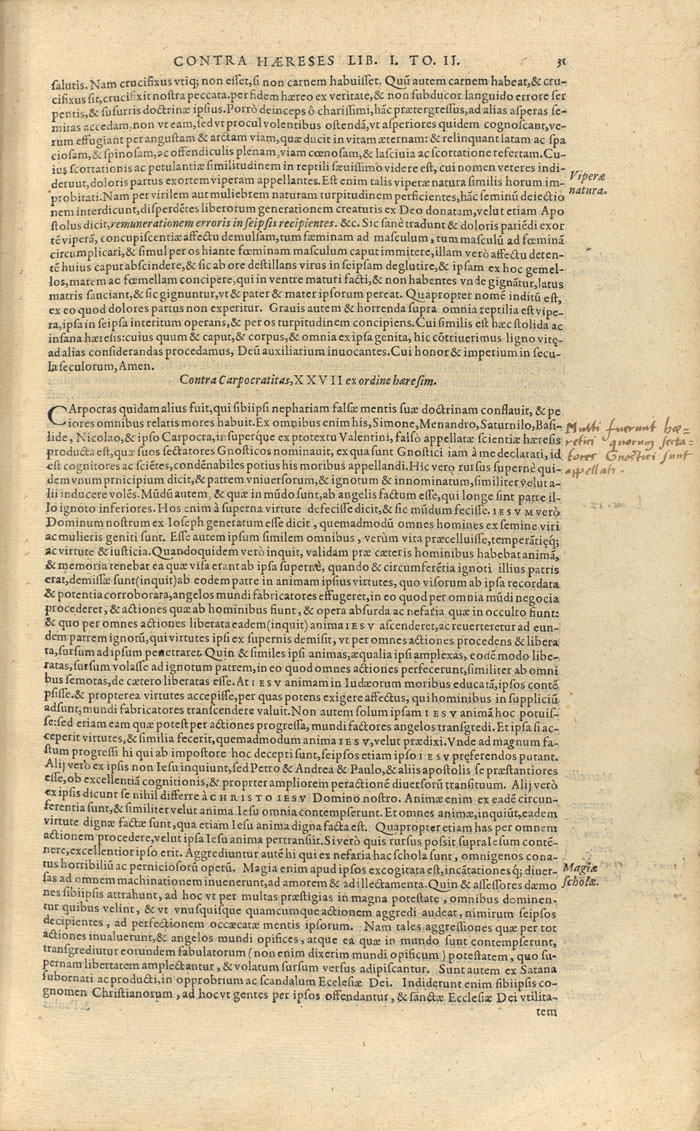 CONTRA HÆRESES LIB. I. TO. II. 31
salutis. Nam crucifixus vtiq; non esset, si non carnem habuisset. Quū autem carnem habeat, & cru-
cifixus sit, crucifixit nostra peccata. per fidem hæreo ex veritate, & non subducor languido errore ser
pentis, & susurris doctrinæ ipsius. Porrò deinceps ô charissimi, hāc prætergressus, ad alias asperas se-
mitas accedam, non vt eam, sed vt procul volentibus ostendā, vt asperiores quidem cognoscant, ve-
rum effugiant per angustam & arctam viam, quæ ducit in vitam æternam: & relinquant latam ac spa
ciosam, & spinosam, ac offendiculis plenam, viam cœnosam, & lasciuia ac scortatione refertam. Cu-
ius scortationis ac petulantiæ similitudinem in reptili sæuissimo videre est, cui nomen veteres indi-
deruut, doloris partus exortem viperam appellantes. Est enim talis viperæ natura similis horum im-
probitati. Nam per virilem aut muliebrem naturam turpitudinem perficientes, hāc seminū deiectio
nem interdicunt, disperdētes liberorum generationem creaturis ex Deo donatam, velut etiam Apo
stolus dicit, remunerationem erroris in seipsis recipientes. &c. Sic sanè tradunt & doloris pariēdi exor
tē viperā, concupiscentiæ affectu demulsam, tum fœminam ad masculum, tum masculū ad fœminā
circumplicari, & simul per os hiante fœminam masculum caput immitere, illam verò affectu deten-
tē huius caput abscindere, & sic ab ore destillans virus in seipsam deglutire, & ipsam ex hoc gemel-
los, marem ac fœmellam concipere, qui in ventre maturi facti, & non habentes vnde gignātur, latus
matris sauciant, & sic gignuntur, vt & pater & mater ipsorum pereat. Quapropter nomē inditū est,
ex eo quod dolores partus non experitur. Grauis autem & horrenda supra omnia reptilia est vipe-
ra, ipsa in seipsa interitum operans, & per os turpitudinem concipiens. Cui similis est hæc stolida ac
insana hæresis: cuius quum & caput, & corpus, & omnia ex ipsa genita, hic cōtriuerimus ligno vitę,
ad alias considerandas procedamus, Deū auxiliarium inuocantes. Cui honor & imperium in secu-
la seculorum, Amen.
Viperæ
natura.
Contra Carpocratitas, XXVII ex ordine hæresim.
CArpocras quidam alius fuit, qui sibiipsi nephariam falsæ mentis suæ doctrinam conflauit, & pe
iores omnibus relatis mores habuit. Ex ompibus enim his, Simone, Menandro, Saturnilo, Basi-
lide, Nicolao, & ipso Carpocra, insuperque ex protextu Valentini, falso appellatæ scientiæ hæresis
producta est, quæ suos sectatores Gnosticos nominauit, ex qua sunt Gnostici iam à me declarati, id
est cognitores ac sciētes, condēnabiles potius his moribus appellandi. Hic verò rursus supernè qui-
dem vnum prnicipium dicit, & patrem vniuersorum, & ignotum & innominatum, similiter velut a-
lii inducere volēs. Mūdū autem, & quæ in mūdo sunt, ab angelis factum esse, qui longe sint patre il-
lo ignoto inferiores. Hos enim à superna virtute defecisse dicit, & sic mūdum fecisse. IESVM verò
Dominum nostrum ex Ioseph generatum esse dicit, quemadmodū omnes homines ex semine viri
ac mulieris geniti sunt. Esse autem ipsum similem omnibus, verùm vita præcelluisse, temperātięq;
ac virtute & iusticia. Quandoquidem verò inquit, validam præ cæteris hominibus habebat animā,
& memoria tenebat ea quæ visa erant ab ipsa supernè, quando & circumferētia ignoti illius patris
erat, demissæ sunt (inquit) ab eodem patre in animam ipsius virtutes, quo visorum ab ipsa recordata
& potentia corroborata, angelos mundi fabricatores effugeret, in eo quod per omnia mūdi negocia
procederet, & actiones quæ ab hominibus fiunt, & opera absurda ac nefaria quæ in occulto fiunt:
& quo per omnes actiones liberata eadem (inquit) anima IESV ascenderet, ac reuerteretur ad eun-
dem patrem ignotū, qui virtutes ipsi ex supernis demisit, vt per omnes actiones procedens & libera
ta, sursum ad ipsum penetraret. Quin & similes ipsi animas, æqualia ipsi amplexas, eodē modo libe-
ratas, sursum volasse ad ignotum patrem, in eo quod omnes actiones perfecerunt, similiter ab omni
bus semotas, de cætero liberatas esse. At IESV animam in Iudæorum moribus educatā, ipsos contē
psisse. & propterea virtutes accepisse, per quas potens exigere affectus, qui hominibus in suppliciū
adsunt, mundi fabricatores transcendere valuit. Non autem solum ipsam IESV animā hoc potuis-
se: sed etiam eam quæ potest per actiones progressa, mundi factores angelos transgredi. Et ipsa si ac-
ceperit virtutes, & similia fecerit, quemadmodum anima IESV, velut prædixi. Vnde ad magnum fa-
stum progressi hi qui ab impostore hoc decepti sunt, seipsos etiam ipso IESV pręferendos putant.
Alij verò ex ipsis non Iesu inquiunt, sed Petro & Andrea & Paulo, & aliis apostolis se præstantiores
esse, ob excellentiā cognitionis, & proprter ampliorem peractionē diuersorū transitum. Alij verò
ex ipsis dicunt se nihil differre à CHRISTO IESV Domino nostro. Animæ enim ex eadē circun-
ferentia sunt, & similiter velut anima Iesu omnia contempserunt. Et omnes animæ, inquiūt, eadem
virtute dignæ factæ sunt, qua etiam Iesu anima digna facta est. Quapropter etiam has per omnem
actionem procedere, velut ipsa Iesu anima pertransiit. Si verò quis rursus possit supra Iesum contē-
nere, excellentior ipso erit. Aggrediuntur autē hi qui ex nefaria hac schola sunt, omnigenos cona-
tus horribiliū ac perniciosorū operū. Magia enim apud ipsos excogitata est, incātationes q; diuer-
sas ad omnem machinationem inuenerunt, ad amorem & ad illectamenta. Quin & assessores dæmo
nes sibiipsis attrahunt, ad hoc vt per multas præstigias in magna potestate, omnibus dominen-
tur quibus velint, & vt vnusquisque quamcumque actionem aggredi audeat, nimirum seipsos
decipientes, ad perfectionem occæcatæ mentis ipsorum. Nam tales aggressiones quæ per tot
actiones inualuerunt, & angelos mundi opifices, atque ea quæ in mundo sunt contempserunt,
transgrediutur eorundem fabulatorum (non enim dixerim mundi opificum) potestatem, quo su-
pernam libertatem amplectantur, & volatum sursum versus adipiscantur. Sunt autem ex Satana
subornati ac producti, in opprobrium ac scandalum Ecclesiæ Dei. Indiderunt enim sibiipsis co-
gnomen Christianorum, ad hoc vt gentes per ipsos offendantur, & sanctæ Ecclesiæ Dei vtilita-
tem
Multi fuerunt hæ=
retici quorum secta=
tores Gnostici sunt
appellati.
Magiæ
scholæ.